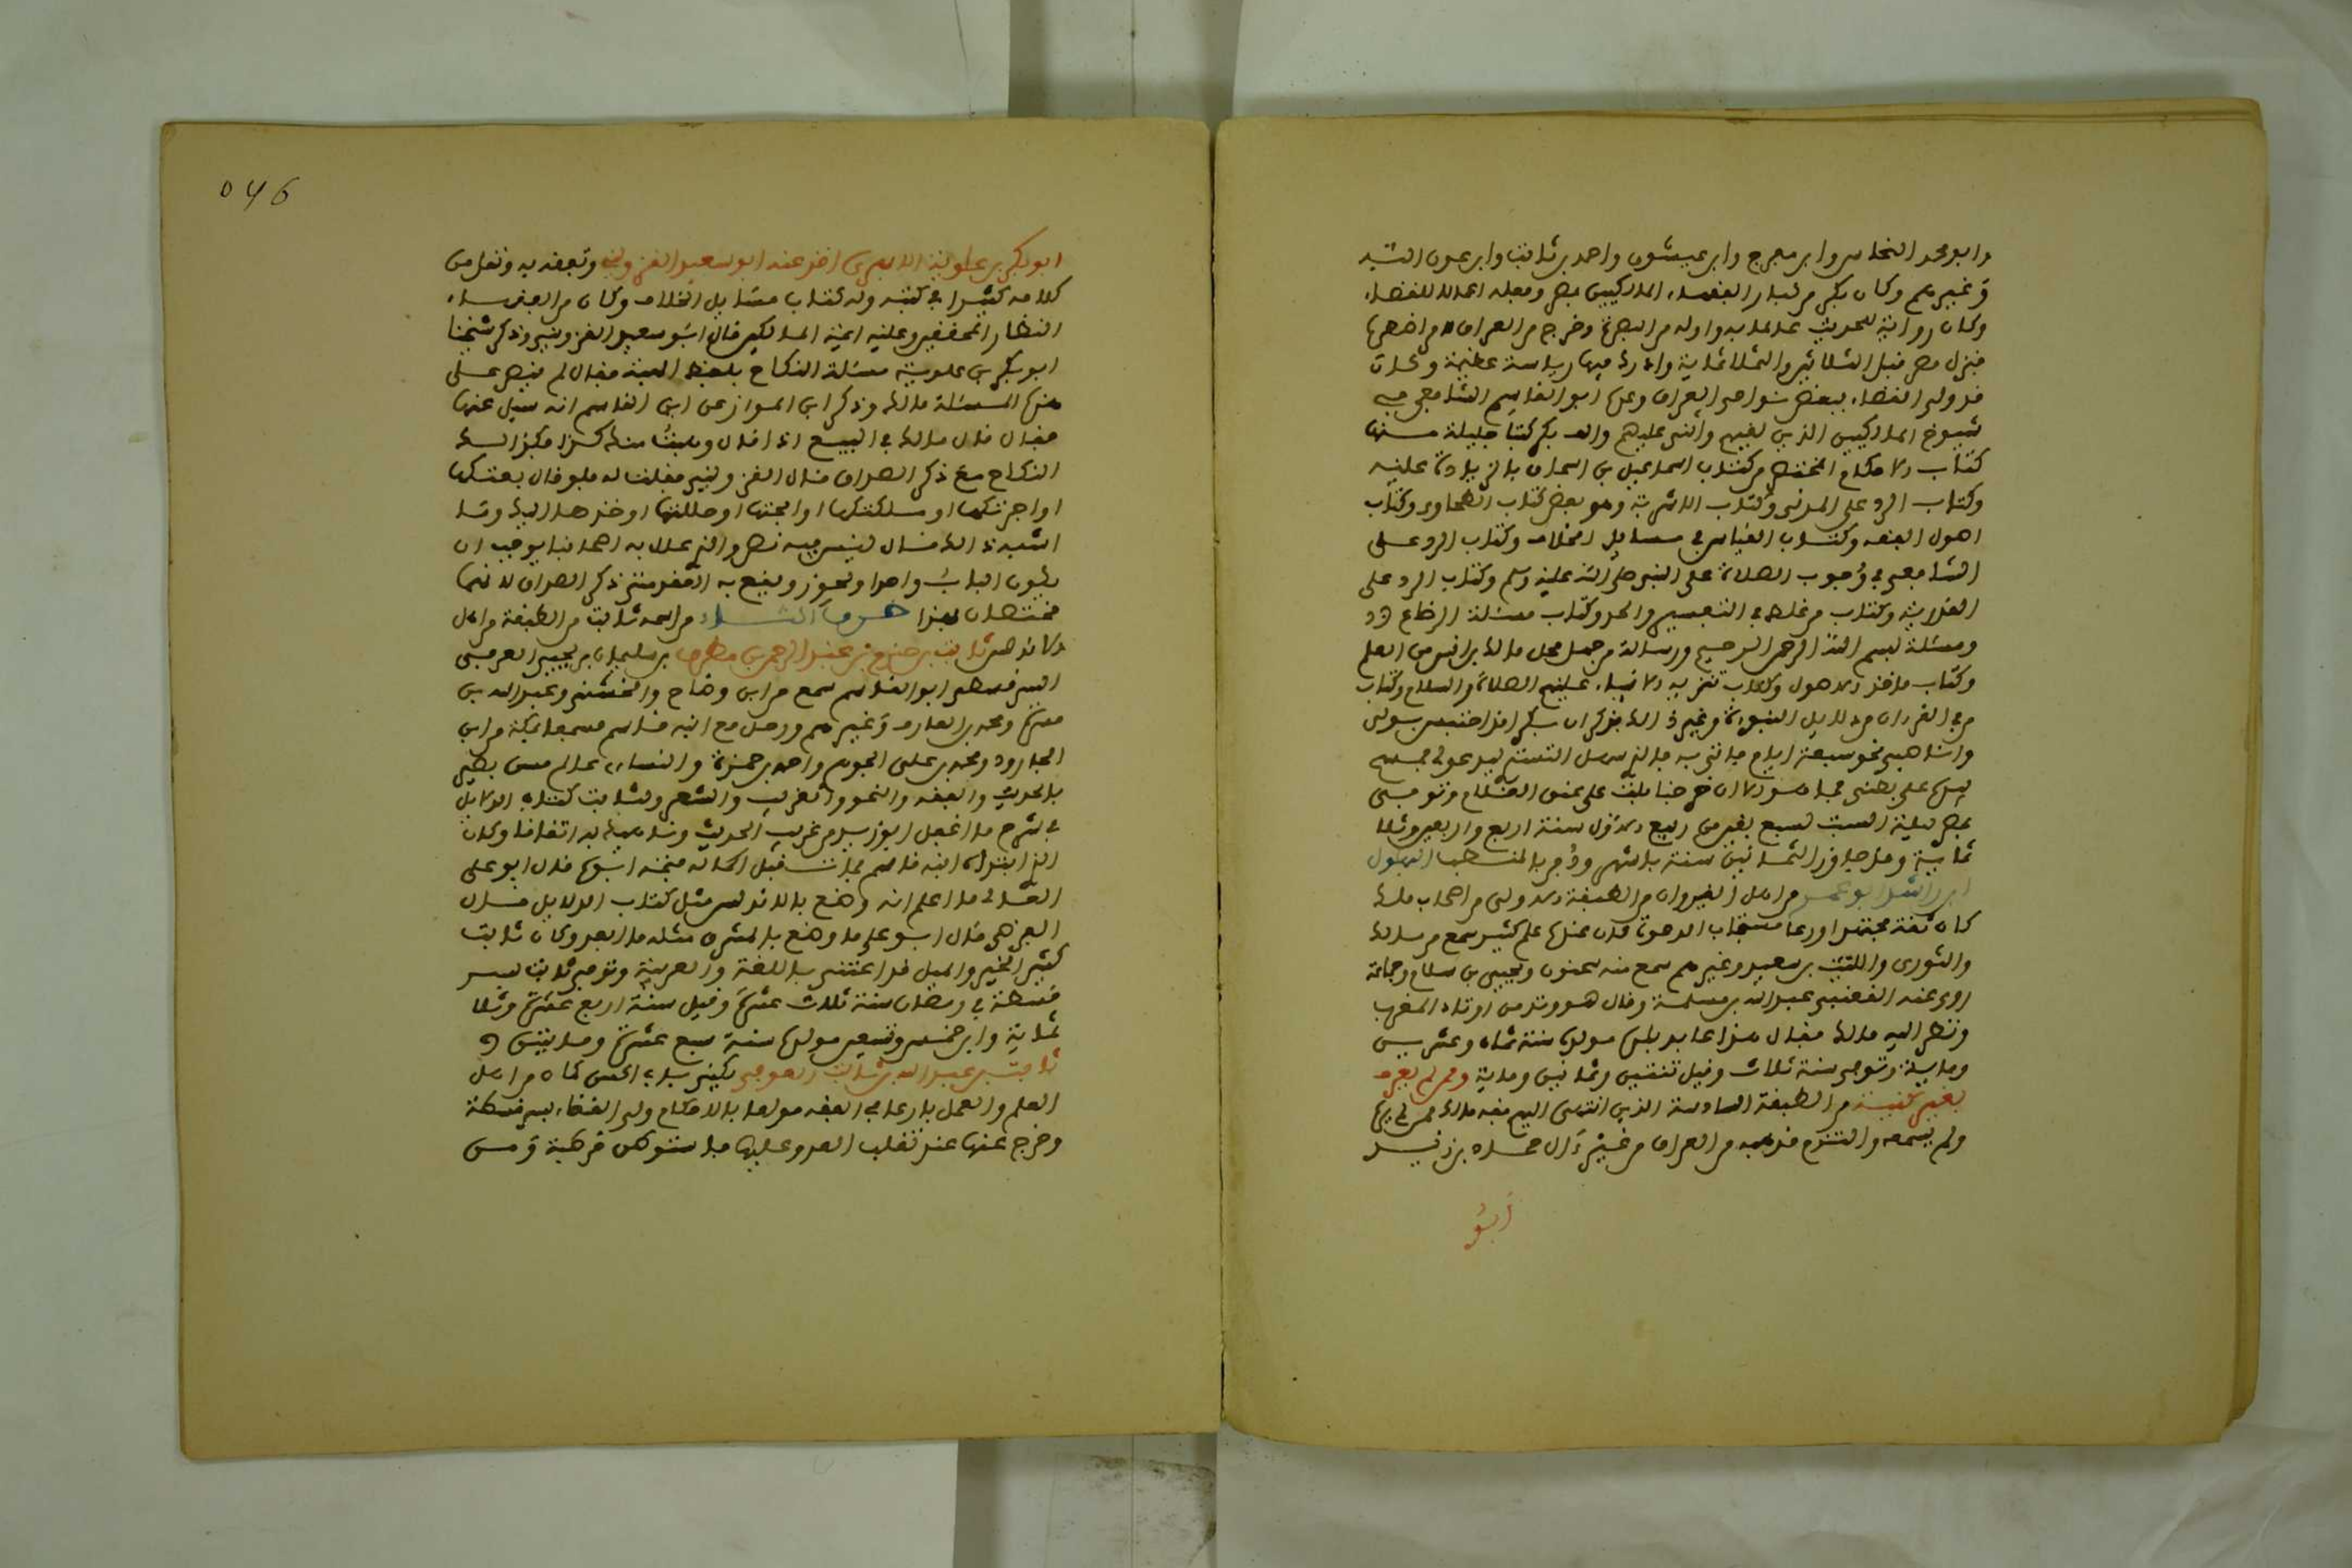 وابو محمد النحاس وابن مفرج وابن عيشون واحمد بن ثابت وابن عون الله
وغيرهم وكان بكر من كبار الفقهاء المالكيين بمصر
وكان راوية للحديث من البصرة وخرج من العراق
فنزل مصر قبل الثلاثين والثلاثماية وادرك فيها رياسة عظيمة وكان
قد ولي القضاء ببعض نواحي العراق وعده ابو القاسم الشافعي في
شيوخ المالكيين الذين لقيهم واثنى عليهم والف بكر كتبا جليلة منها
كتاب الاحكام المختصر من كتاب اسماعيل بن اسحاق بالزيادة عليه
وكتاب الرد على المزني وكتاب الاشربة وهو نقض كتاب الطحاوي وكتاب
اصول الفقه وكتاب القياس في مسايل الخلاف وكتاب الرد على
الشافعي في وجوب الصلاة على النبي صلى الله عليه وسلم وكتاب الرد على
القدرية وكتاب من غلط في التفسير والحد وكتاب مسئلة الرضاع
ومسئلة بسم الله الرحمن الرحيم ورسالة من جهل محل مالك بن انس من العلم
وكتاب ماخذ الاصول وكتاب تنزيه الانبياء عليهم الصلاة والسلام وكتاب
من في القرءان من دلايل النبوة وغير ذلك
بمصر ليلة السبت لسبع بقين من ربيع الاول سنة اربع واربعين وثلا
ثماية وقد جاوز الثمانين سنة باشهر ودفن بالمقطم البهلول
ابن راشد ابو عمر من اهل القيروان من الطبقة الاولى من اصحاب مالك
كان ثقة مجتهدا ورعا مستجاب الدعوة كان عنده علم كثير سمع من مالك
والثوري والليث بن سعد وغيرهم سمع منه سحنون ويحيى بن سلام وجماعة
روى عنه القعنبي عبد الله بن مسلمة وقال هو وتد من اوتاد المغرب
ونظر اليه مالك فقال هذا عابد بلده مولده سنة ثمان وعشرين
وماية وتوفي سنة ثلاث وقيل ثنتين وثمانين وماية وممن لم يعرف
بغير كنيته من الطبقة السادسة الذين انتهى اليهم فقه مالك ممن لم يره
ولم يسمعه والتزم مذهبه من العراق من غير ءال حماد بن زيد
ابو
046
ابو بكر بن علوية الابهري اخذ عنه ابو سعيد القزويني وتفقه به ونقل من
كلامه كثيرا في كتبه وله كتاب مسايل الخلاف وكان من الفقهاء
النظار المحققين وعلية ايمة المالكيين قال ابو سعيد القزويني وذكر شيخنا
ابو بكر بن علوية مسئلة النكاح بلفظ الهبة فقال لم ينص على
هذه المسئلة مالك وذكر ابن المواز عن ابن القاسم انه سيل عنها
فقال قال مالك في البيع اذا قال وهبت منك كذا فكذلك
النكاح مع ذكر الصداق قال القزويني فقلت له فلو قال بعتكها
او اجرتكها او ملكتكها او ابحتها او حللتها او خذها اليك وما
اشبه ذلك قال ليس فيه نص والذي علل به اصحابنا يوجب ان
يكون الباب واحدا ويجوز ويقع به العقد متى ذكر الصداق لانهما
مختصان بهذا حرف الثاء من اسمه ثابت من الطبقة من اهل
الاندلس ثابت بن حزم بن عبد الرحمن بن مطرف بن سليمان بن يحيى العوفي
السرقسطي ابو القاسم سمع من ابن وضاح والخشني وعبد الله بن
مسرة ومحمد بن الغازي وغيرهم ورحل مع ابنه قاسم فسمعا بمكة من ابن
الجارود ومحمد بن علي الجوهري واحمد بن حمزة والنساي عالم متفنن بصير
بالحديث والفقه والنحو والغريب والشعر ولثابت كتاب الدلايل
في شرح ما اغفل ابو عبيد من غريب الحديث
الذي ابتدأه ابنه قاسم فمات قبل اكماله فتممه ابوه قال ابو علي
القالي ما اعلم انه وضع بالاندلس مثل كتاب الدلايل قال
ابن الفرضي ولو قال ابو علي ما وضع بالمشرق مثله ما ابعد وكان ثابت
كثير الخير والميل قد اعتنى باللغة والعربية وتوفي ثابت بسر
قسطة في رمضان سنة ثلاث عشرة وقيل سنة اربع عشرة وثلا
ثماية وابن خمس وتسعين مولده سنة سبع عشرة ومايتين
ثابت بن عبد الله بن ثابت العوفي يكنى بابي الحسن كان من اهل
العلم والعمل بارعا في الفقه مولعا بالاحكام ولي القضاء بسرقسطة
وخرج عنها عند تغلب العدو عليها فاستوطن قرطبة ومن